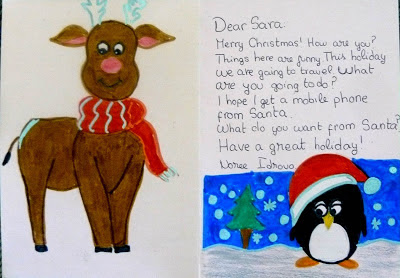 Dear Sara:
Merry Christmas! How are you?
Things here are funny. This holiday
we are going to travel. What
are you going to do?
I hope I get a mobile phone
from Santa.
What do you want from Santa?
Have a great holiday!
Noree Idrovo